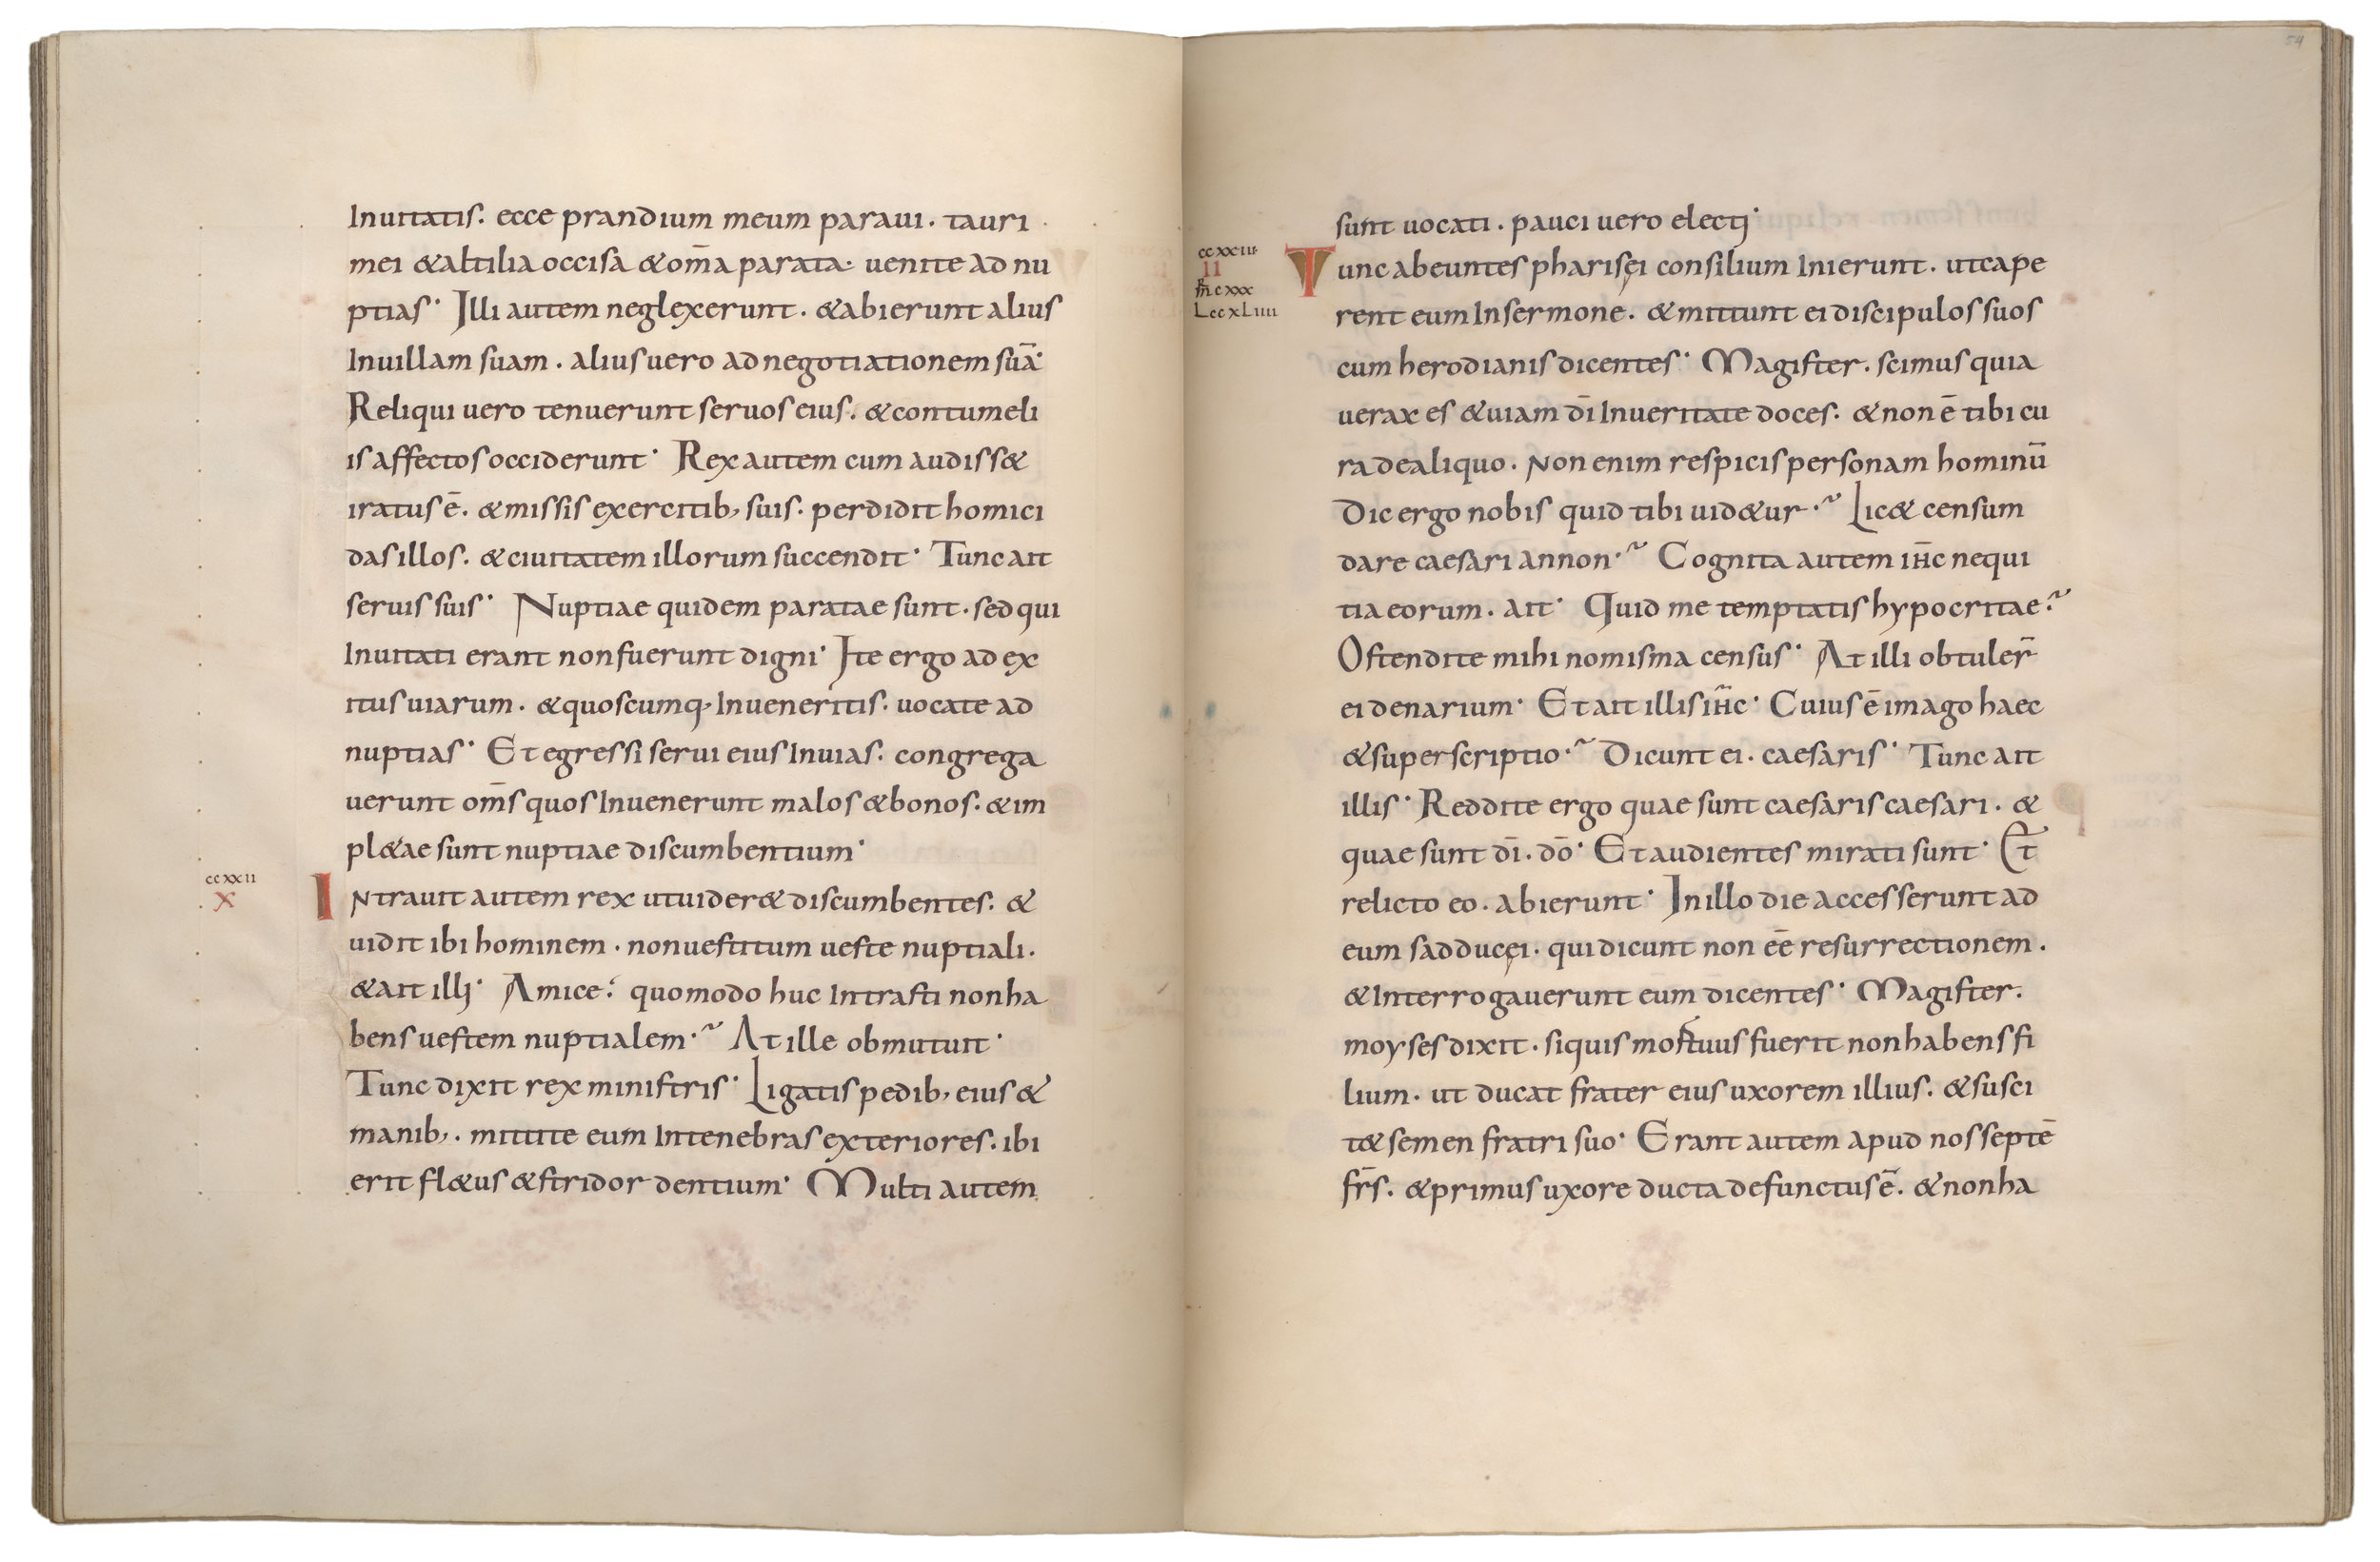 Inuitatis. ecce prandium meum paraui. tauri
mei &altilia occisa &om̄a parata. uenite ad nu
ptias· Illi autem neglexerunt. &abierunt alius
Inuillam suam. alius uero ad negotiationem suā·
Reliqui uero tenuerunt seruos eius. &contumeli
is affectos occiderunt· Rex autem cum audiss&
iratus ē. &missis exercitib, suis. perdidit homici
das illos. &ciuitatem illorum succendit· Tunc ait
seruis suis· Nuptiae quidem paratae sunt. sed qui
Inuitati erant non fuerunt digni· Ite ergo ad ex
itus uiarum. &quoscumq, Inueneritis. uocate ad
nuptias· Et egressi serui eius Inuias. congrega
uerunt om̄s quos Inuenerunt malos &bonos. &im
pl&ae sunt nuptiae discumbentium·
ccxxii
x
Intrauit autem rex utuider& discumbentes. &
uidit ibi hominem. non uestitum ueste nuptiali.
&ait illi· Amice. quomodo huc Intrasti non ha
bens uestem nuptialem.~ At ille obmutuit·
Tunc dixit rex ministris· Ligatis pedib, eius &
manib,. mittite eum Intenebras exteriores. ibi
erit fl&us &stridor dentium· Multi autem
54
sunt uocati. pauci uero electi·
ccxxiii
ii
mr̄ cxxx
L ccxLiiii
Tunc abeuntes pharisęi consilium Inierunt. utcape
rent eum Insermone. &mittunt ei discipulos suos
cum herodianis dicentes· Magister. scimus quia
uerax es &uiam dī Inueritate doces. &non ē tibi cu
ra dealiquo. Non enim respicis personam hominū
Dic ergo nobis quid tibi uid&ur.~ Lic& censum
dare caesari annon.~ Cognita autem ih̄c nequi
tia eorum. ait· Quid me temptatis hypocritae.~
Ostendite mihi nomisma census· At illi obtuler̄
ei denarium· Et ait illis ih̄c· Cuius ē imago haec
&superscriptio.~ Dicunt ei. caesaris· Tunc ait
illis· Reddite ergo quae sunt caesaris caesari. &
quae sunt dī. dō· Et audientes mirati sunt· Et
relicto eo. abierunt· In illo die accesserunt ad
eum sadducęi. qui dicunt non eē resurrectionem.
&Interrogauerunt eum dicentes· Magister.
moyses dixit. siquis mortuus fuerit non habens fi
lium. ut ducat frater eius uxorem illius. &susci
t& semen fratri suo· Erant autem apud nos septē
fr̄s. &primus uxore ducta defunctus ē. &non ha